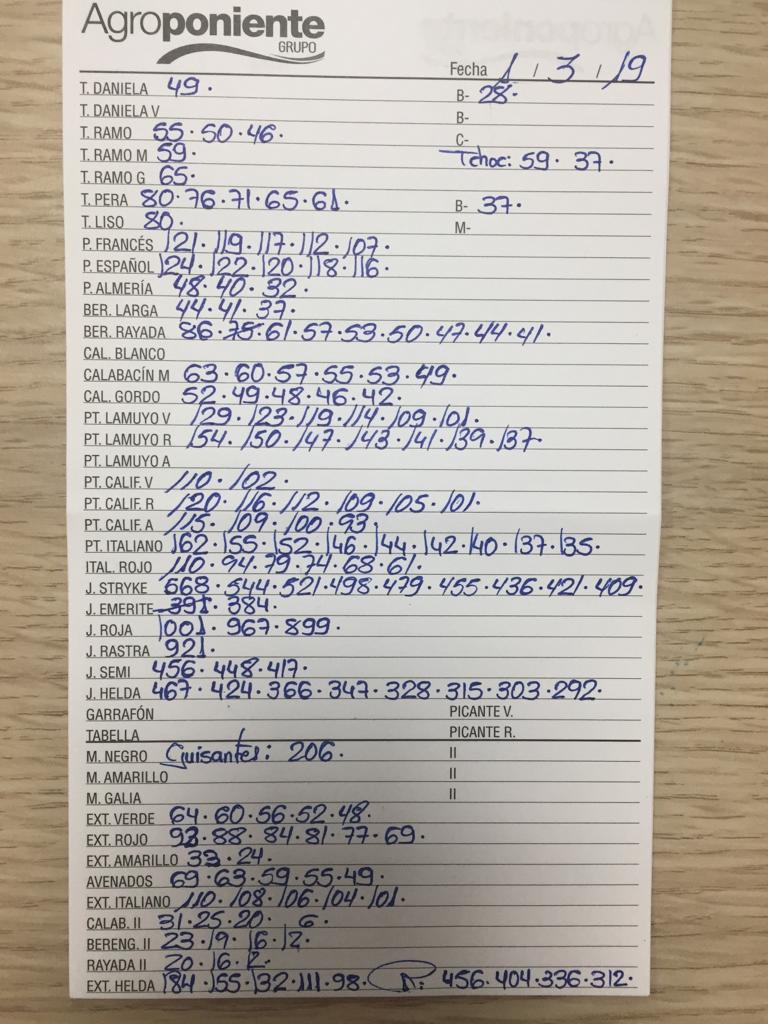 Agroponiente
GRUPO
Fecha 1 / 3 / 19
T. DANIELA 49. B- 28.
T. DANIELA V B-
T. RAMO 55. 50. 46. C-
T. RAMO M 59. Tchoc: 59. 37.
T. RAMO G 65.
T. PERA 80. 76. 71. 65. 61. B- 37.
T. LISO 80. M-
P. FRANCÉS 121. 119. 117. 112. 107.
P. ESPAÑOL 124. 122. 120. 118. 116.
P. ALMERÍA 48. 40. 32.
BER. LARGA 44. 41. 37.
BER. RAYADA 86. 75. 61. 57. 53. 50. 47. 44. 41.
CAL. BLANCO
CALABACÍN M 63. 60. 57. 55. 53. 49.
CAL. GORDO 52. 49. 48. 46. 42.
PT. LAMUYO V 129. 123. 119. 114. 109. 101.
PT. LAMUYO R 154. 150. 147. 143. 141. 139. 137.
PT. LAMUYO A
PT. CALIF. V 110. 102.
PT. CALIF. R 120. 116. 112. 109. 105. 101.
PT. CALIF. A 115. 109. 100. 93.
PT. ITALIANO 162. 155. 152. 146. 144. 142. 140. 137. 135.
ITAL. ROJO 110. 94. 79. 74. 68. 61.
J. STRYKE 568. 544. 521. 498. 479. 455. 436. 421. 409.
J. EMERITE 391. 384.
J. ROJA 1001. 967. 899.
J. RASTRA 921.
J. SEMI 456. 448. 417.
J. HELDA 467. 424. 366. 347. 328. 315. 303. 292.
GARRAFÓN PICANTE V.
TABELLA PICANTE R.
M. NEGRO Guisantes: 206. II
M. AMARILLO II
M. GALIA II
EXT. VERDE 64. 60. 56. 52. 48.
EXT. ROJO 93. 88. 84. 81. 77. 69.
EXT. AMARILLO 33. 24.
AVENADOS 69. 63. 59. 55. 49.
EXT. ITALIANO 110. 108. 106. 104. 101.
CALAB. II 31. 25. 20. 6.
BERENG. II 23. 19. 16. 12.
RAYADA II 20. 16. 12.
EXT. HELDA 184. 155. 132. 111. 98. R: 456. 404. 336. 312.